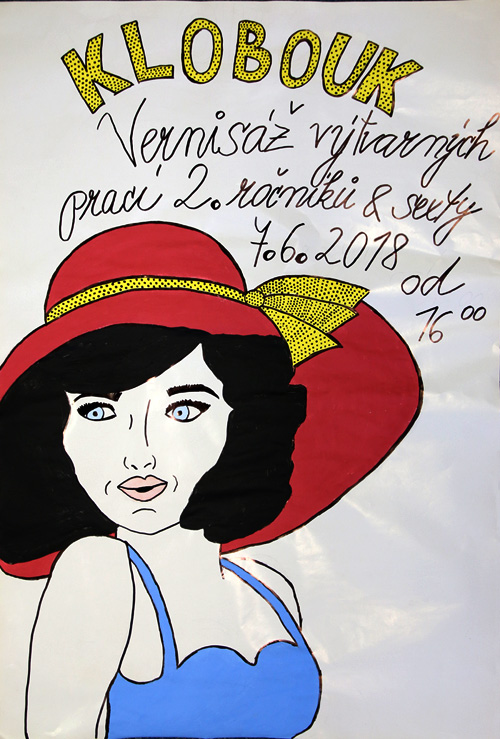 KLOBOUK
Vernisáž výtvarných
prací 2. ročníků &
7.6.2018
od
16 00